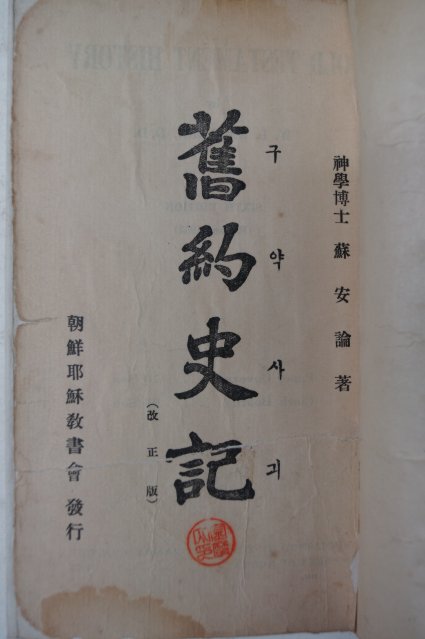 神學博士 蘇安論 著
舊約史記
구약사긔
(改正版)
朝鮮耶穌敎書會 發行